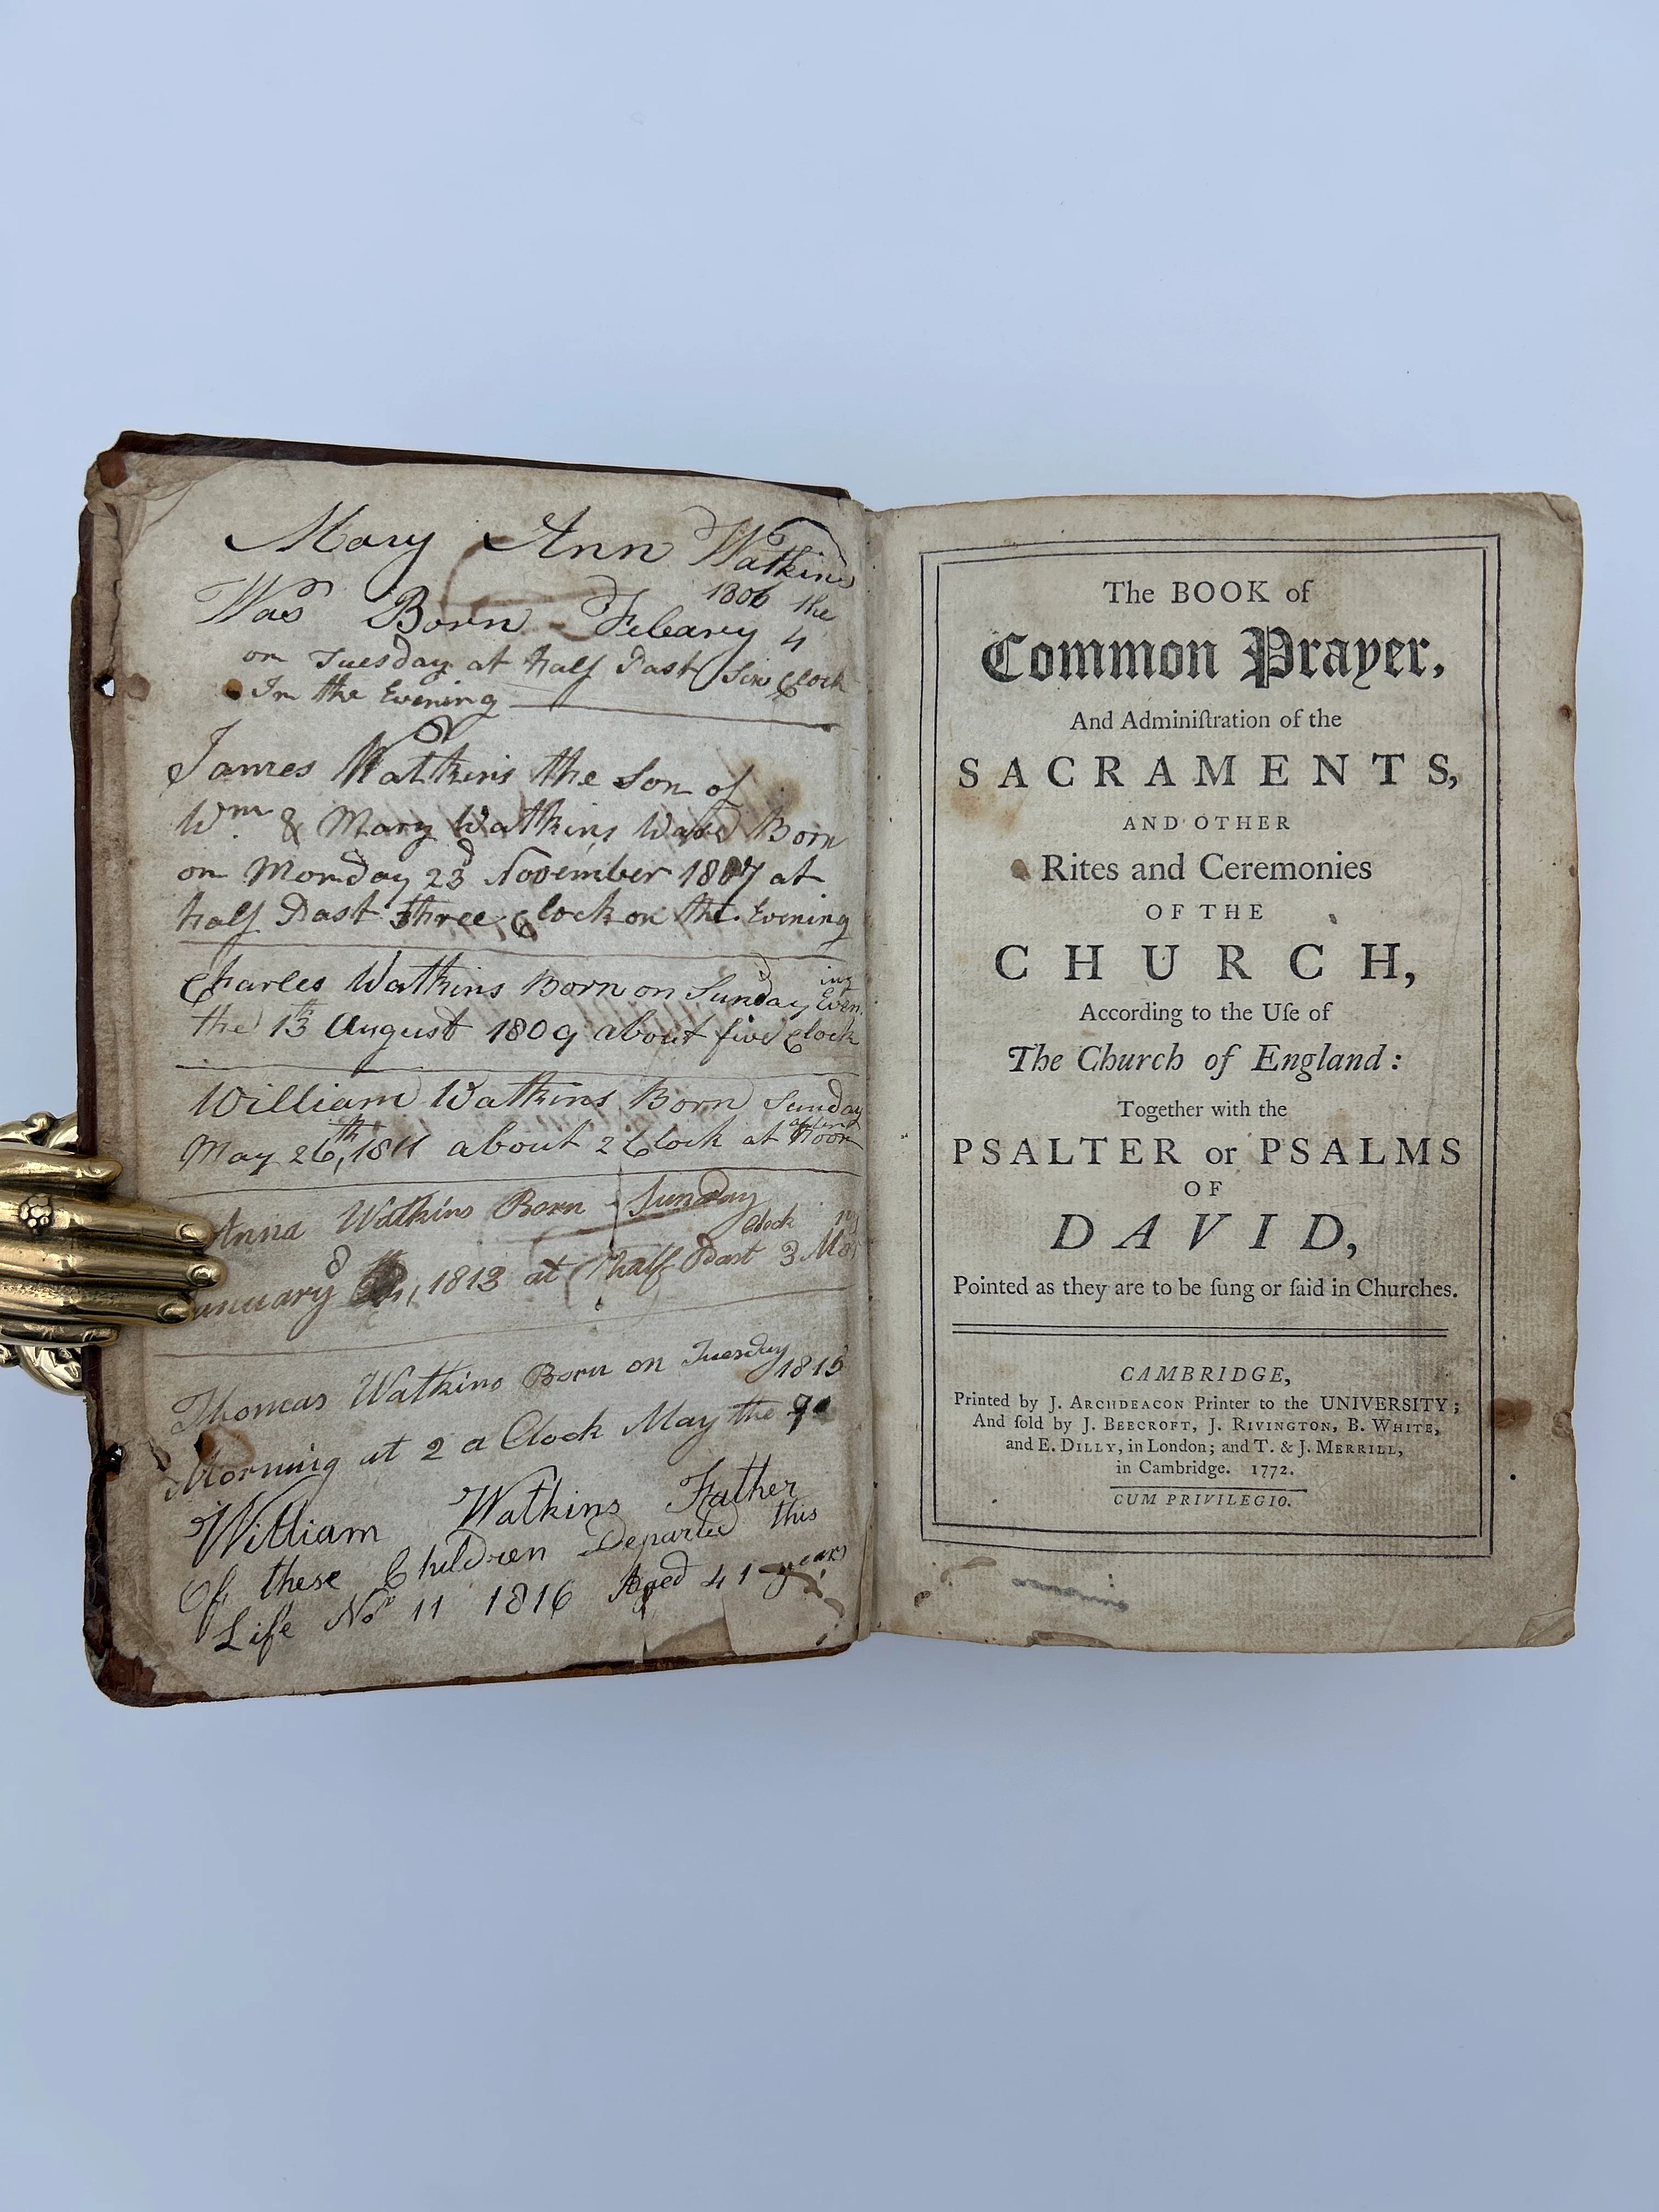 Mary Ann Watkins
Was Born Febeary 1806 the 4
on Tuesday at half Past Six Clock
In the Evening
James Watkins the Son of
Wm & Mary Watkins Was Born
on Monday 23d November 1807 at
half Past three Clock on the Evening
Charles Watkins Born on Sunday Even ing
the 13th August 1809 about five Clock
William Watkins Born Sunday
May 26th, 1811 about 2 Clock at after Noon
Anna Watkins Born Sunday
January 8th, 1813 at half Past 3 Clock Mor ng
Thomas Watkins Born on Tuesday 1815
Morning at 2 a Clock May the 9
William Watkins Father
Of these Children Departed this
Life Nor 11 1816 Aged 41 years
The BOOK of
Common Prayer,
And Adminiſtration of the
SACRAMENTS,
AND OTHER
Rites and Ceremonies
OF THE
CHURCH,
According to the Uſe of
The Church of England:
Together with the
PSALTER or PSALMS
OF
DAVID,
Pointed as they are to be ſung or ſaid in Churches.
CAMBRIDGE,
Printed by J. ARCHDEACON Printer to the UNIVERSITY;
And ſold by J. BEECROFT, J. RIVINGTON, B. WHITE,
and E. DILLY, in London; and T. & J. MERRILL,
in Cambridge. 1772.
CUM PRIVILEGIO.